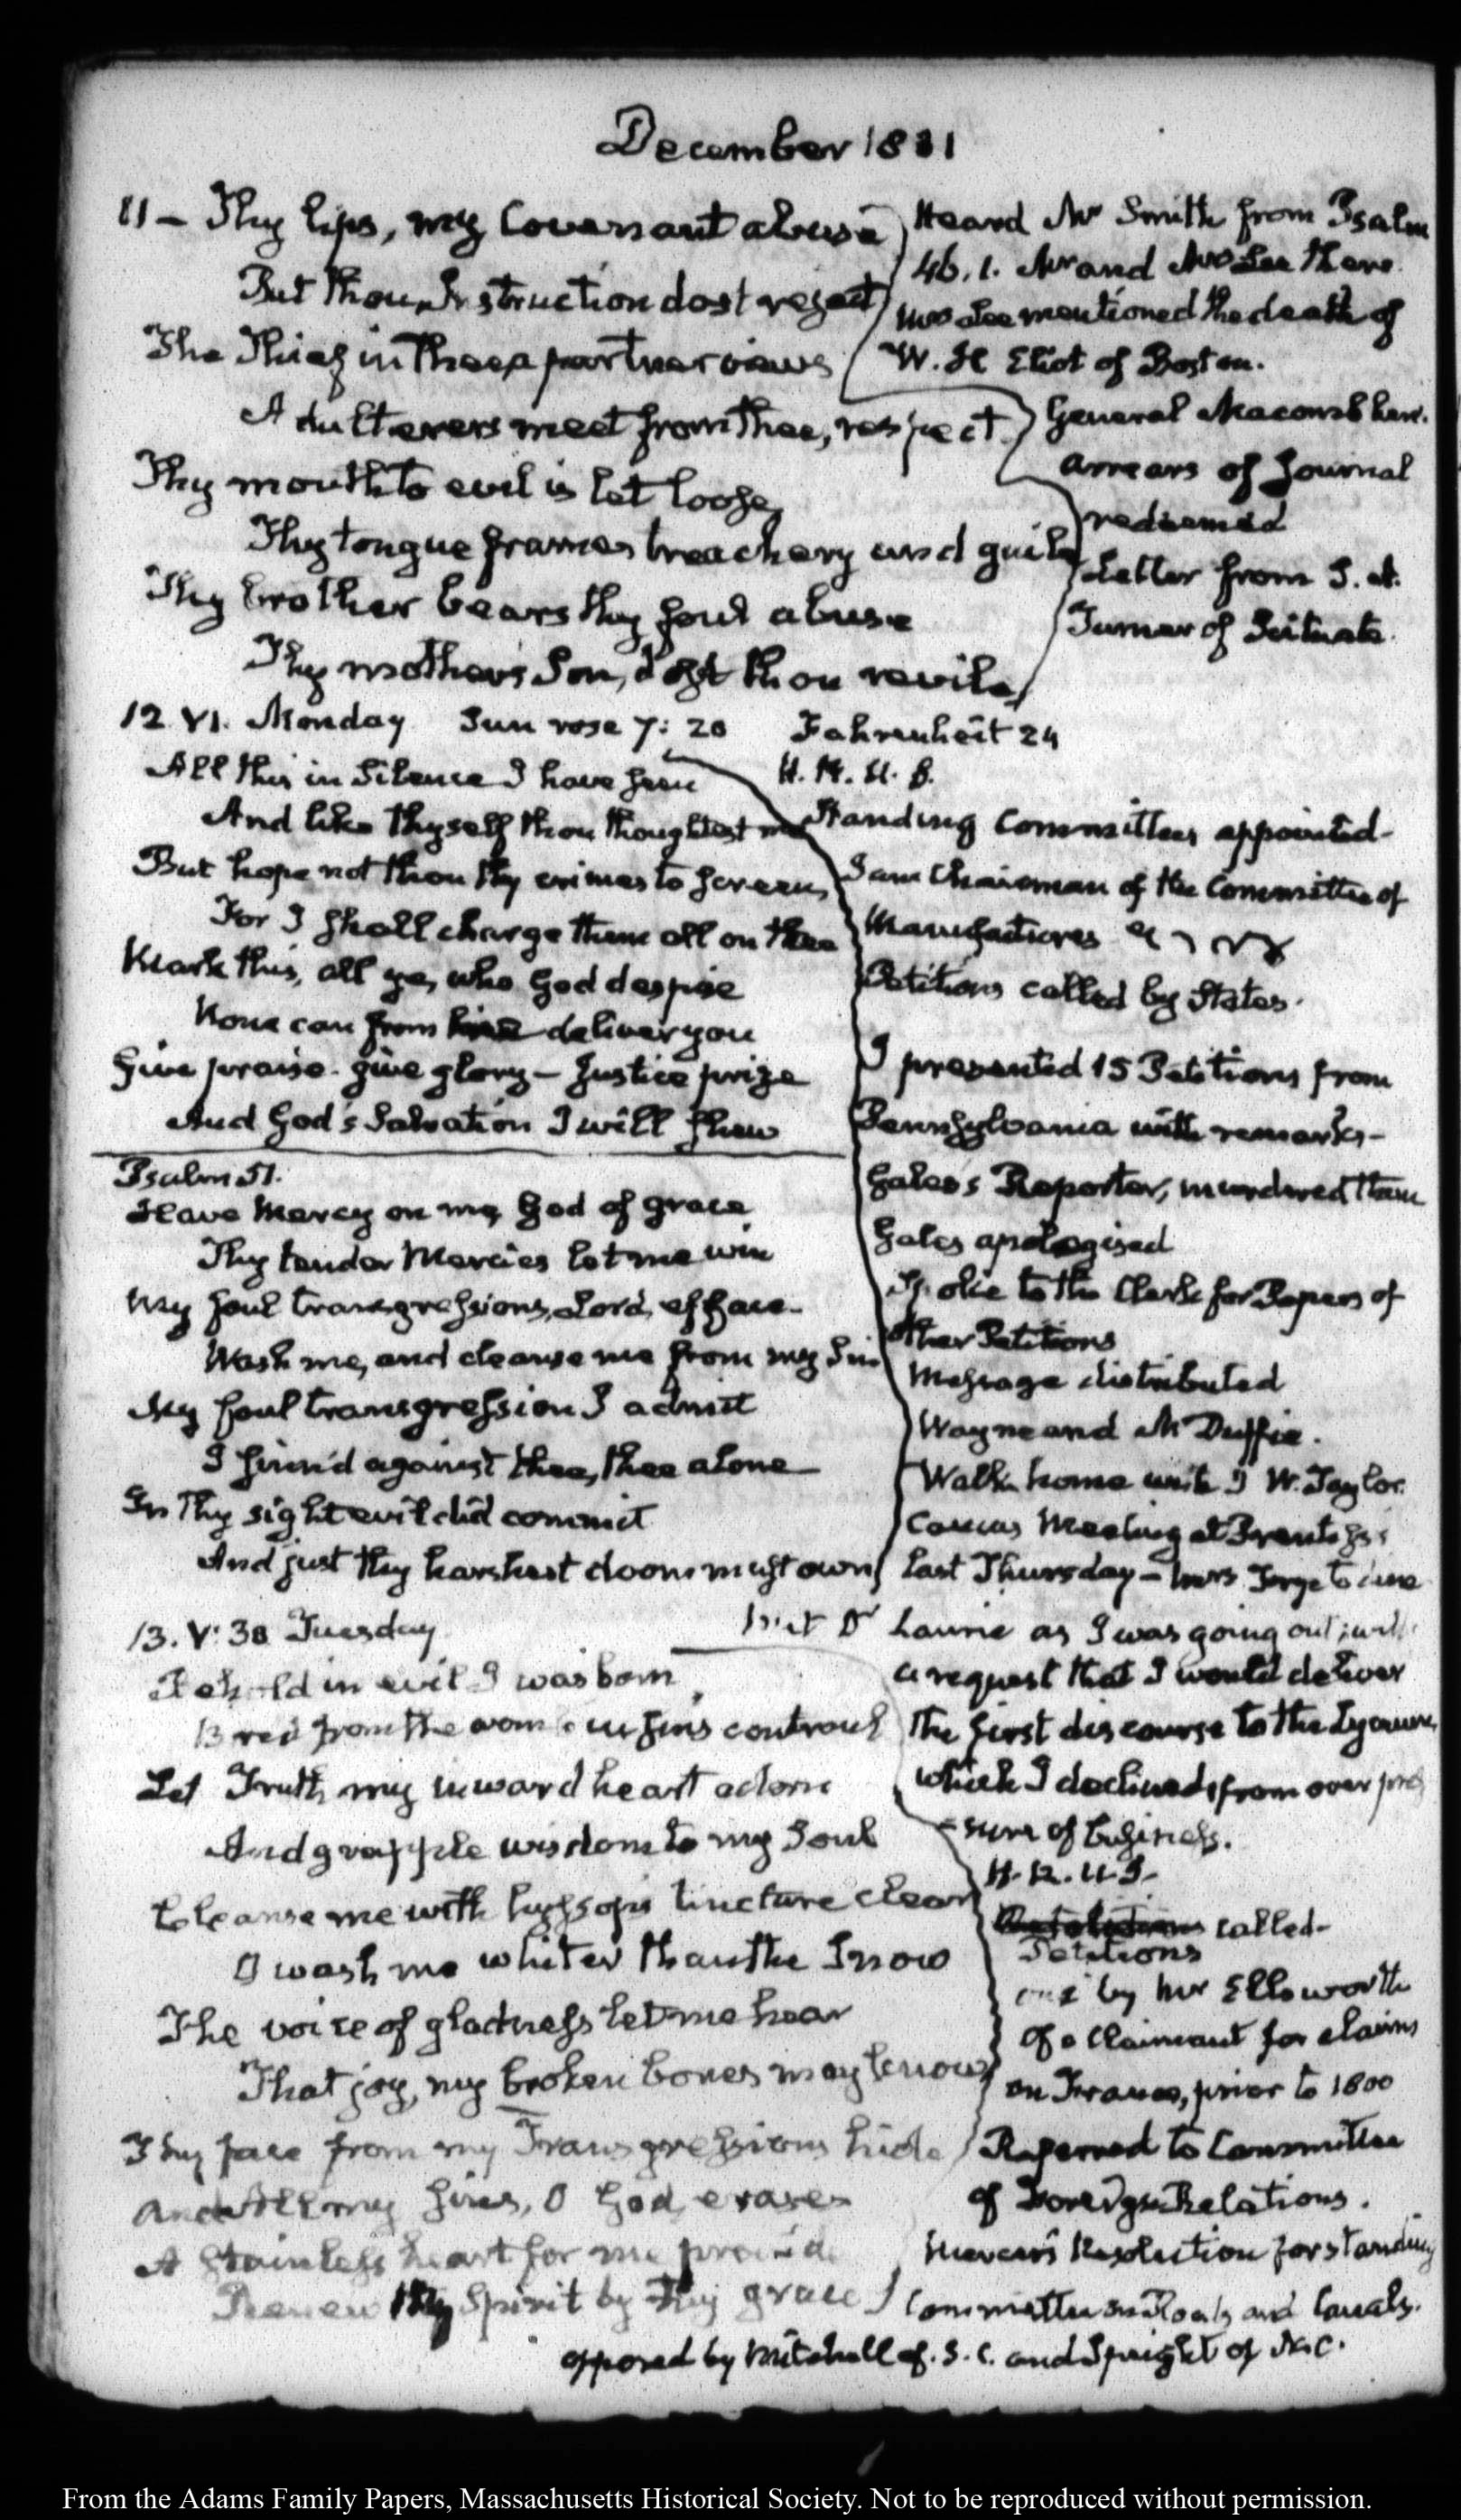 December 1831
11 – Thy lips, my Covenant abuse
But thou, Instruction dost reject
The Thief in Thee a partner views
Adulterers meet from Thee, respect.
Thy mouth to evil is let loose,
Thy tongue frames treachery and guile
Thy brother bears thy foul abuse
Thy mother's Son, dost thou revile,
Heard Mr Smith from Psalm
46. 1. Mr and Mrs Lee there.
Mrs Lee mentioned the death of
W. H Eliot of Boston.
General Macomb here.
Arrears of Journal
redeemed
Letter from S. A.
Turner of Scituate.
12. VI. Monday Sun rose 7: 20 Fahrenheit 24
All this in Silence I have seen
And like thyself thou thoughtest me
But hope not thou thy crimes to screen,
For I shall charge them all on thee
Mark this, all ye, who God despise
None can from deliver you
Give praise - give glory – Justice prize
And God's Salvation I will shew
Psalm 51.
Have Mercy on me, God of grace
Thy tender Mercies let me win
My foul transgressions, Lord, efface -
Wash me, and cleanse me from my Sin
My foul transgression I admit
I sinn'd against thee, thee alone
In Thy sight evil did commit
And just thy harshest doom must own
H. R. U. S.
Standing Committees appointed -
I am Chairman of the Committee of
Manufactures
Petitions called by States.
I presented 15 Petitions from
Pennsylvania with remarks -
Gales's Reporter, murdered them
Gales apologised
Spoke to the Clerk for Papers of
other Petitions
Message distributed
Wayne and McDuffie.
Walk home with J W. Taylor.
Caucus Meeting at
last Thursday – to dine
13. V: 30 Tuesday
Behold in evil I was born
Bred from the womb in sins controul
Let Truth my inward heart adorn
And grapple wisdom to my Soul
Cleanse me with hyssop's tincture clear
O wash me whiter than the Snow
The voice of gladness let me hear
That joy, my broken bones may know
Thy face from my Transgressions hide
And all my sins, O God, erase
A stainless heart for me provide
Renew thy Spirit by Thy grace
Met Dr Laurie as I was going out; with
a request that I would deliver
the first discourse to the Lyceum,
which I declined, from over pres
sure of business.
H. R. U. S.
called -
Petitions
one by Mr Ellsworth
of a Claimant for claims
on France, prior to 1800
Referred to Committee
of Foreign Relations.
Mercer's Resolution for standing
Committee on Roads and Canals.
opposed by Mitchell of S. C. and Speight of N. C.
From the Adams Family Papers, Massachusetts Historical Society. Not to be reproduced without permission.